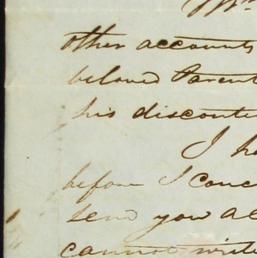 other accounts
beloved Parent
his disconte
I ha
before I conc
send you a
cannot write